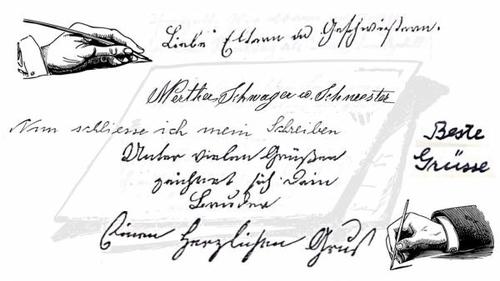 Liebe Eltern u Geschwistern.
Werther Schwager u. Schwester
Nun schliesse ich mein Schreiben
Unter vielen Grüßen
zeichnet sich Dein
Bruder
Beste
Grüsse
Einen Herzlichen Gruß